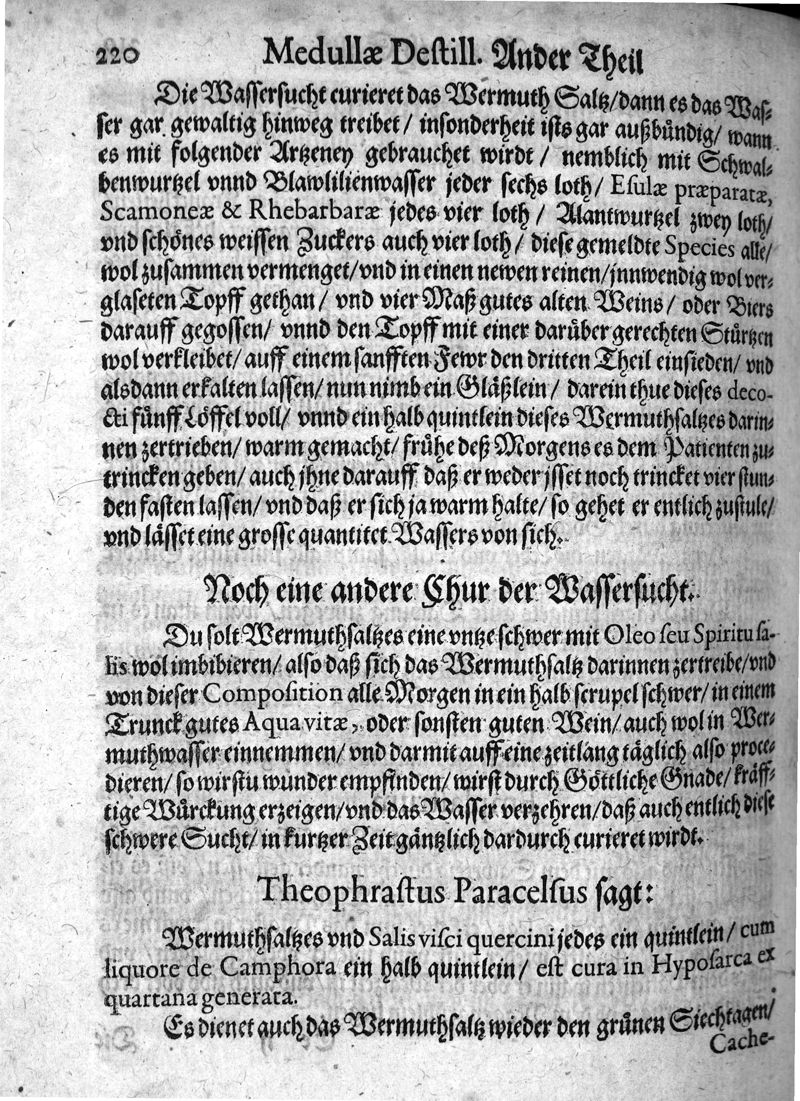 220 Medullæ Destill. Ander Theil
Die Wassersucht curieret das Wermuth Saltz/dann es das Was-
ser gar gewaltig hinweg treibet/ insonderheit ists gar außbündig/ wann
es mit folgender Artzeney gebrauchet wirdt/ nemblich mit Schwal-
benwurtzel vnnd Blawlilienwasser jeder sechs loth/ Esulæ præparatæ,
Scamoneæ & Rhebarbaræ jedes vier loth/ Alantwurtzel zwey loth/
vnd schönes weissen Zuckers auch vier loth/ diese gemeldte Species alle/
wol zusammen vermenget/vnd in einen newen reinen/jnnwendig wol ver-
glaseten Topff gethan/ vnd vier Maß gutes alten Weins/ oder Biers
darauff gegossen/ vnnd den Topff mit einer darüber gerechten Stürtzen
wol verkleibet/ auff einem sanfften Fewr den dritten Theil einsieden/ vnd
alsdann erkalten lassen/ nun nimb ein Gläßlein/ darein thue dieses deco-
cti fünff Löffel voll/ vnnd ein halb quintlein dieses Wermuthsaltzes darin-
nen zertrieben/ warm gemacht/ frühe deß Morgens es dem Patienten zu-
trincken geben/ auch jhne darauff daß er weder jsset noch trincket vier stun-
den fasten lassen/ vnd daß er sich ja warm halte/ so gehet er entlich zustule/
vnd lässet eine grosse quantitet Wassers von sich.
Noch eine andere Chur der Wassersucht.
Du solt Wermuthsaltzes eine vntze schwer mit Oleo seu Spiritu sa-
lis wol imbibieren/ also daß sich das Wermuthsaltz darinnen zertreibe/vnd
von dieser Composition alle Morgen in ein halb scrupel schwer/ in einem
Trunck gutes Aqua vitæ, oder sonsten guten Wein/ auch wol in Wer-
muthwasser einnemmen/ vnd darmit auff eine zeitlang täglich also proce-
dieren/ so wirstu wunder empfinden/ wirst durch Göttliche Gnade/ kräff-
tige Würckung erzeigen/vnd das Wasser verzehren/daß auch entlich diese
schwere Sucht/ in kurtzer Zeit gäntzlich dardurch curieret wirdt.
Theophrastus Paracelsus sagt:
Wermuthsaltzes vnd Salis visci quercini jedes ein quintlein/ cum
liquore de Camphora ein halb quintlein/ est cura in Hyposarca ex
quartana generata.
Es dienet auch das Wermuthsaltz wieder den grünen Siechtagen/
Cache-